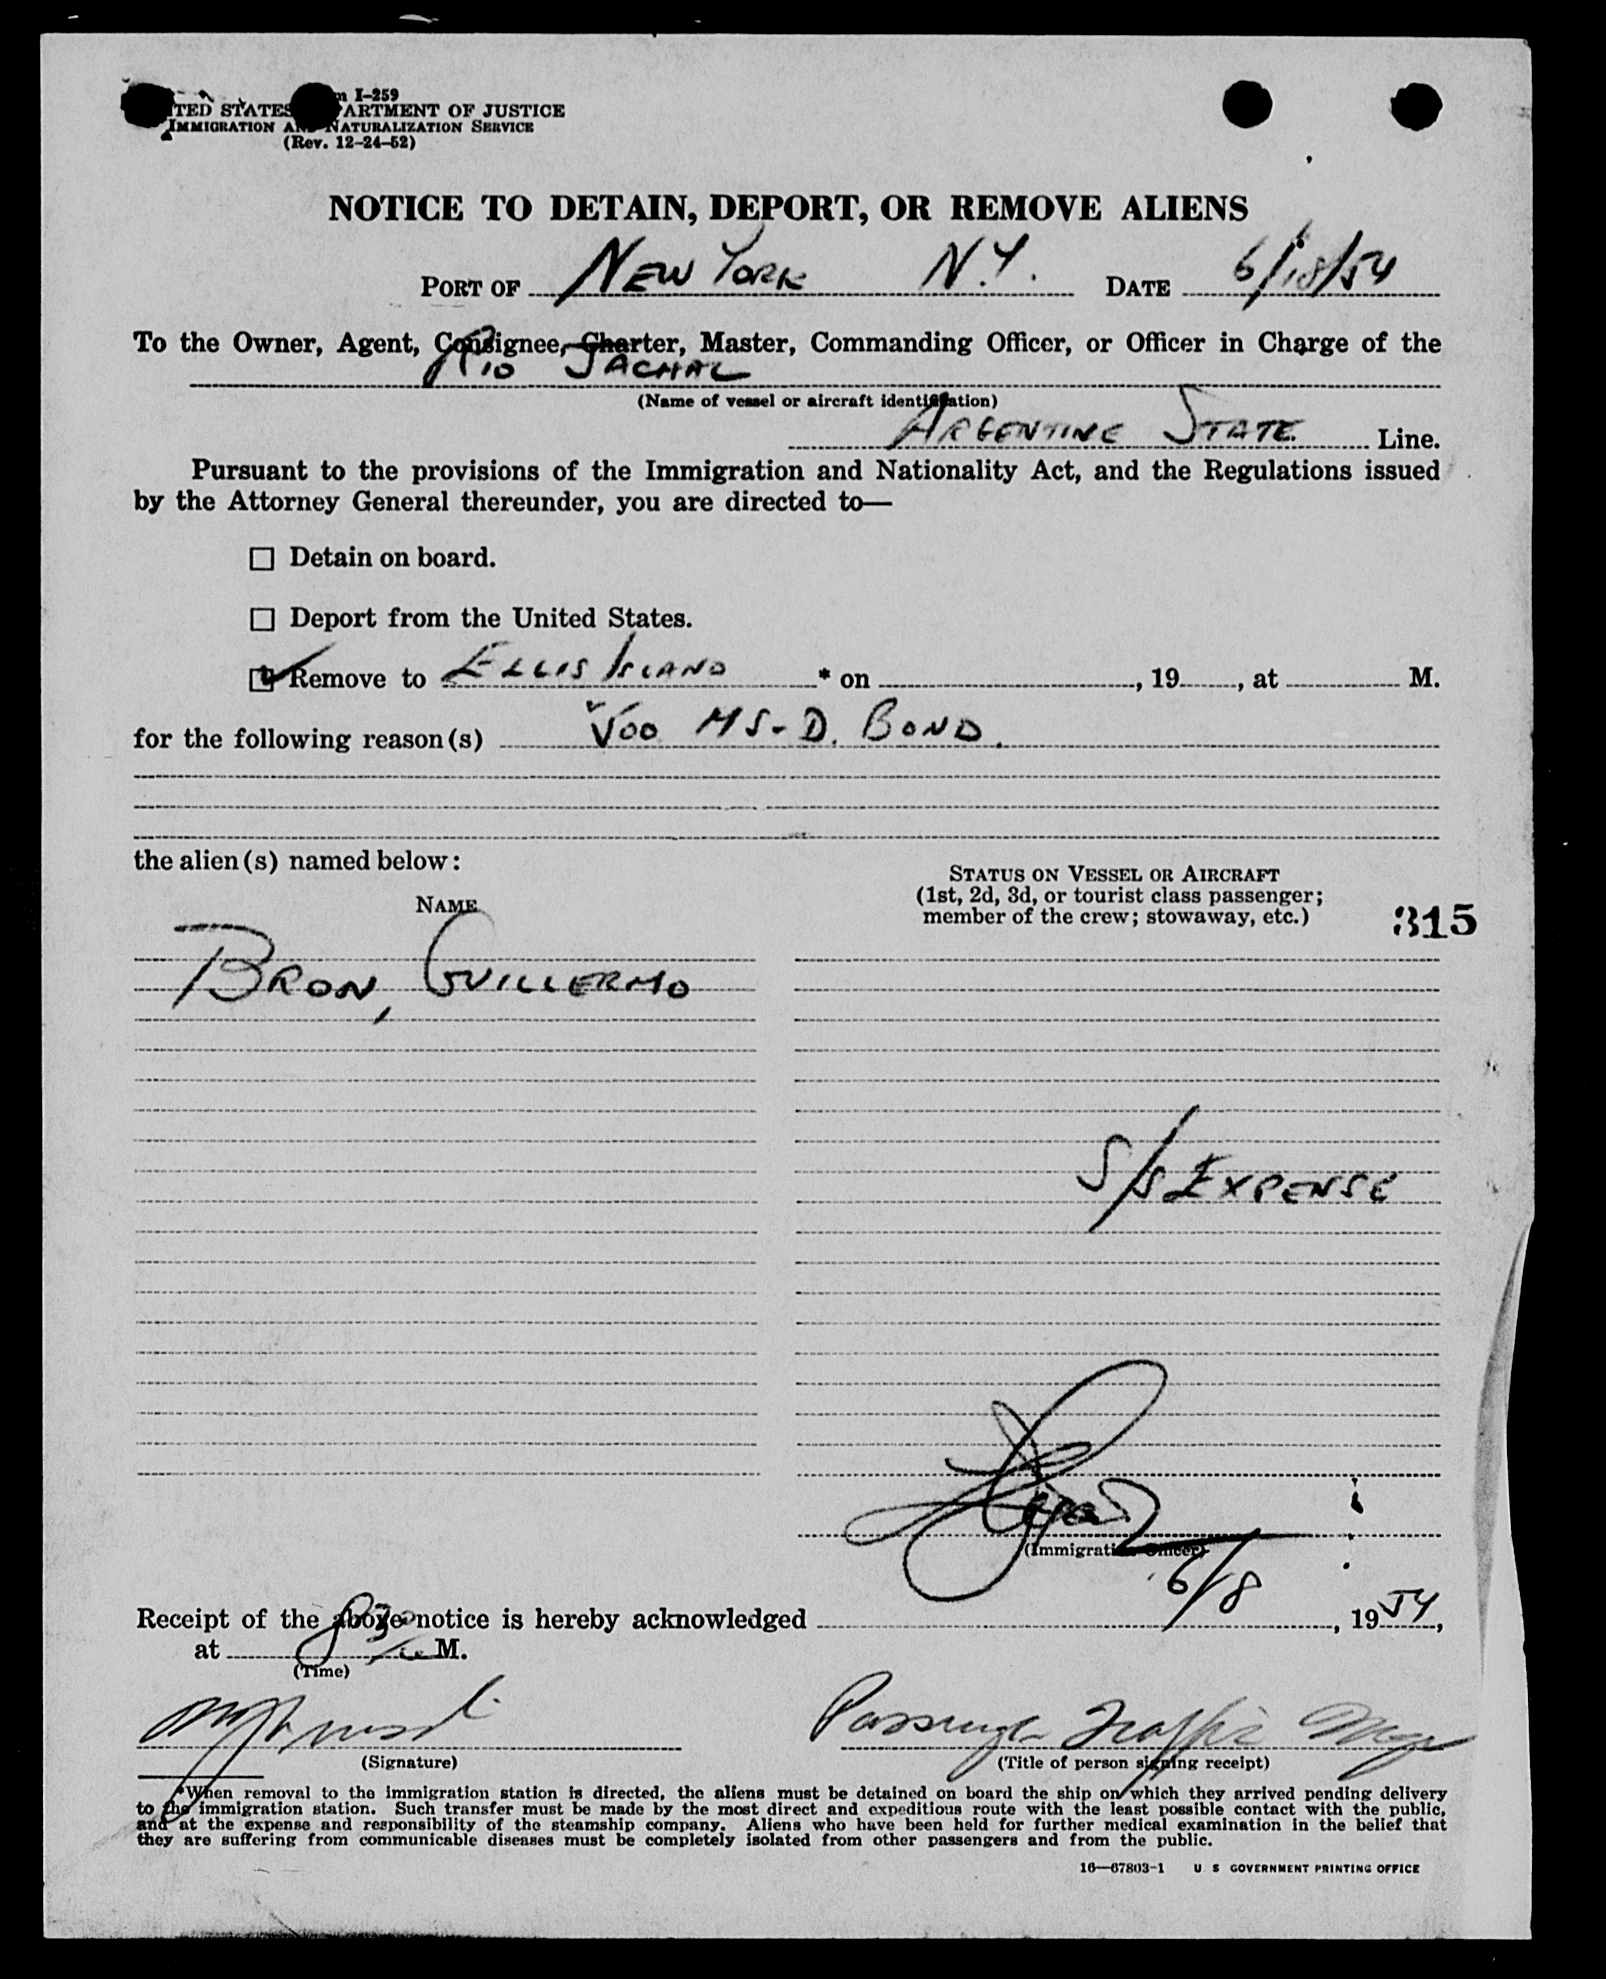 m I-259
TED STATES PARTMENT OF JUSTICE
IMMIGRATION AND NATURALIZATION SERVICE
(Rev. 12-24-52)
NOTICE TO DETAIN, DEPORT, OR REMOVE ALIENS
PORT OF NEW YORK N.Y. DATE 6/18/54
To the Owner, Agent, Consignee, Charter, Master, Commanding Officer, or Officer in Charge of the
RIO JACHAL
(Name of vessel or aircraft identification)
ARGENTINE STATE Line.
Pursuant to the provisions of the Immigration and Nationality Act, and the Regulations issued
by the Attorney General thereunder, you are directed to—
☐ Detain on board.
☐ Deport from the United States.
☑ Remove to ELLIS ISLAND * on , 19 , at M.
for the following reason(s) 500 MS-D. BOND.
the alien(s) named below:
NAME
STATUS ON VESSEL OR AIRCRAFT
(1st, 2d, 3d, or tourist class passenger;
member of the crew; stowaway, etc.)
315
BRON, GUILLERMO
S/S EXPENSE
(Immigration Officer)
Receipt of the above notice is hereby acknowledged 6/8, 1954,
at 830 M.
(Time)
Passenger Traffic Mgr
(Signature)
(Title of person signing receipt)
*When removal to the immigration station is directed, the aliens must be detained on board the ship on which they arrived pending delivery
to the immigration station. Such transfer must be made by the most direct and expeditious route with the least possible contact with the public,
and at the expense and responsibility of the steamship company. Aliens who have been held for further medical examination in the belief that
they are suffering from communicable diseases must be completely isolated from other passengers and from the public.
16—67803-1 U S GOVERNMENT PRINTING OFFICE